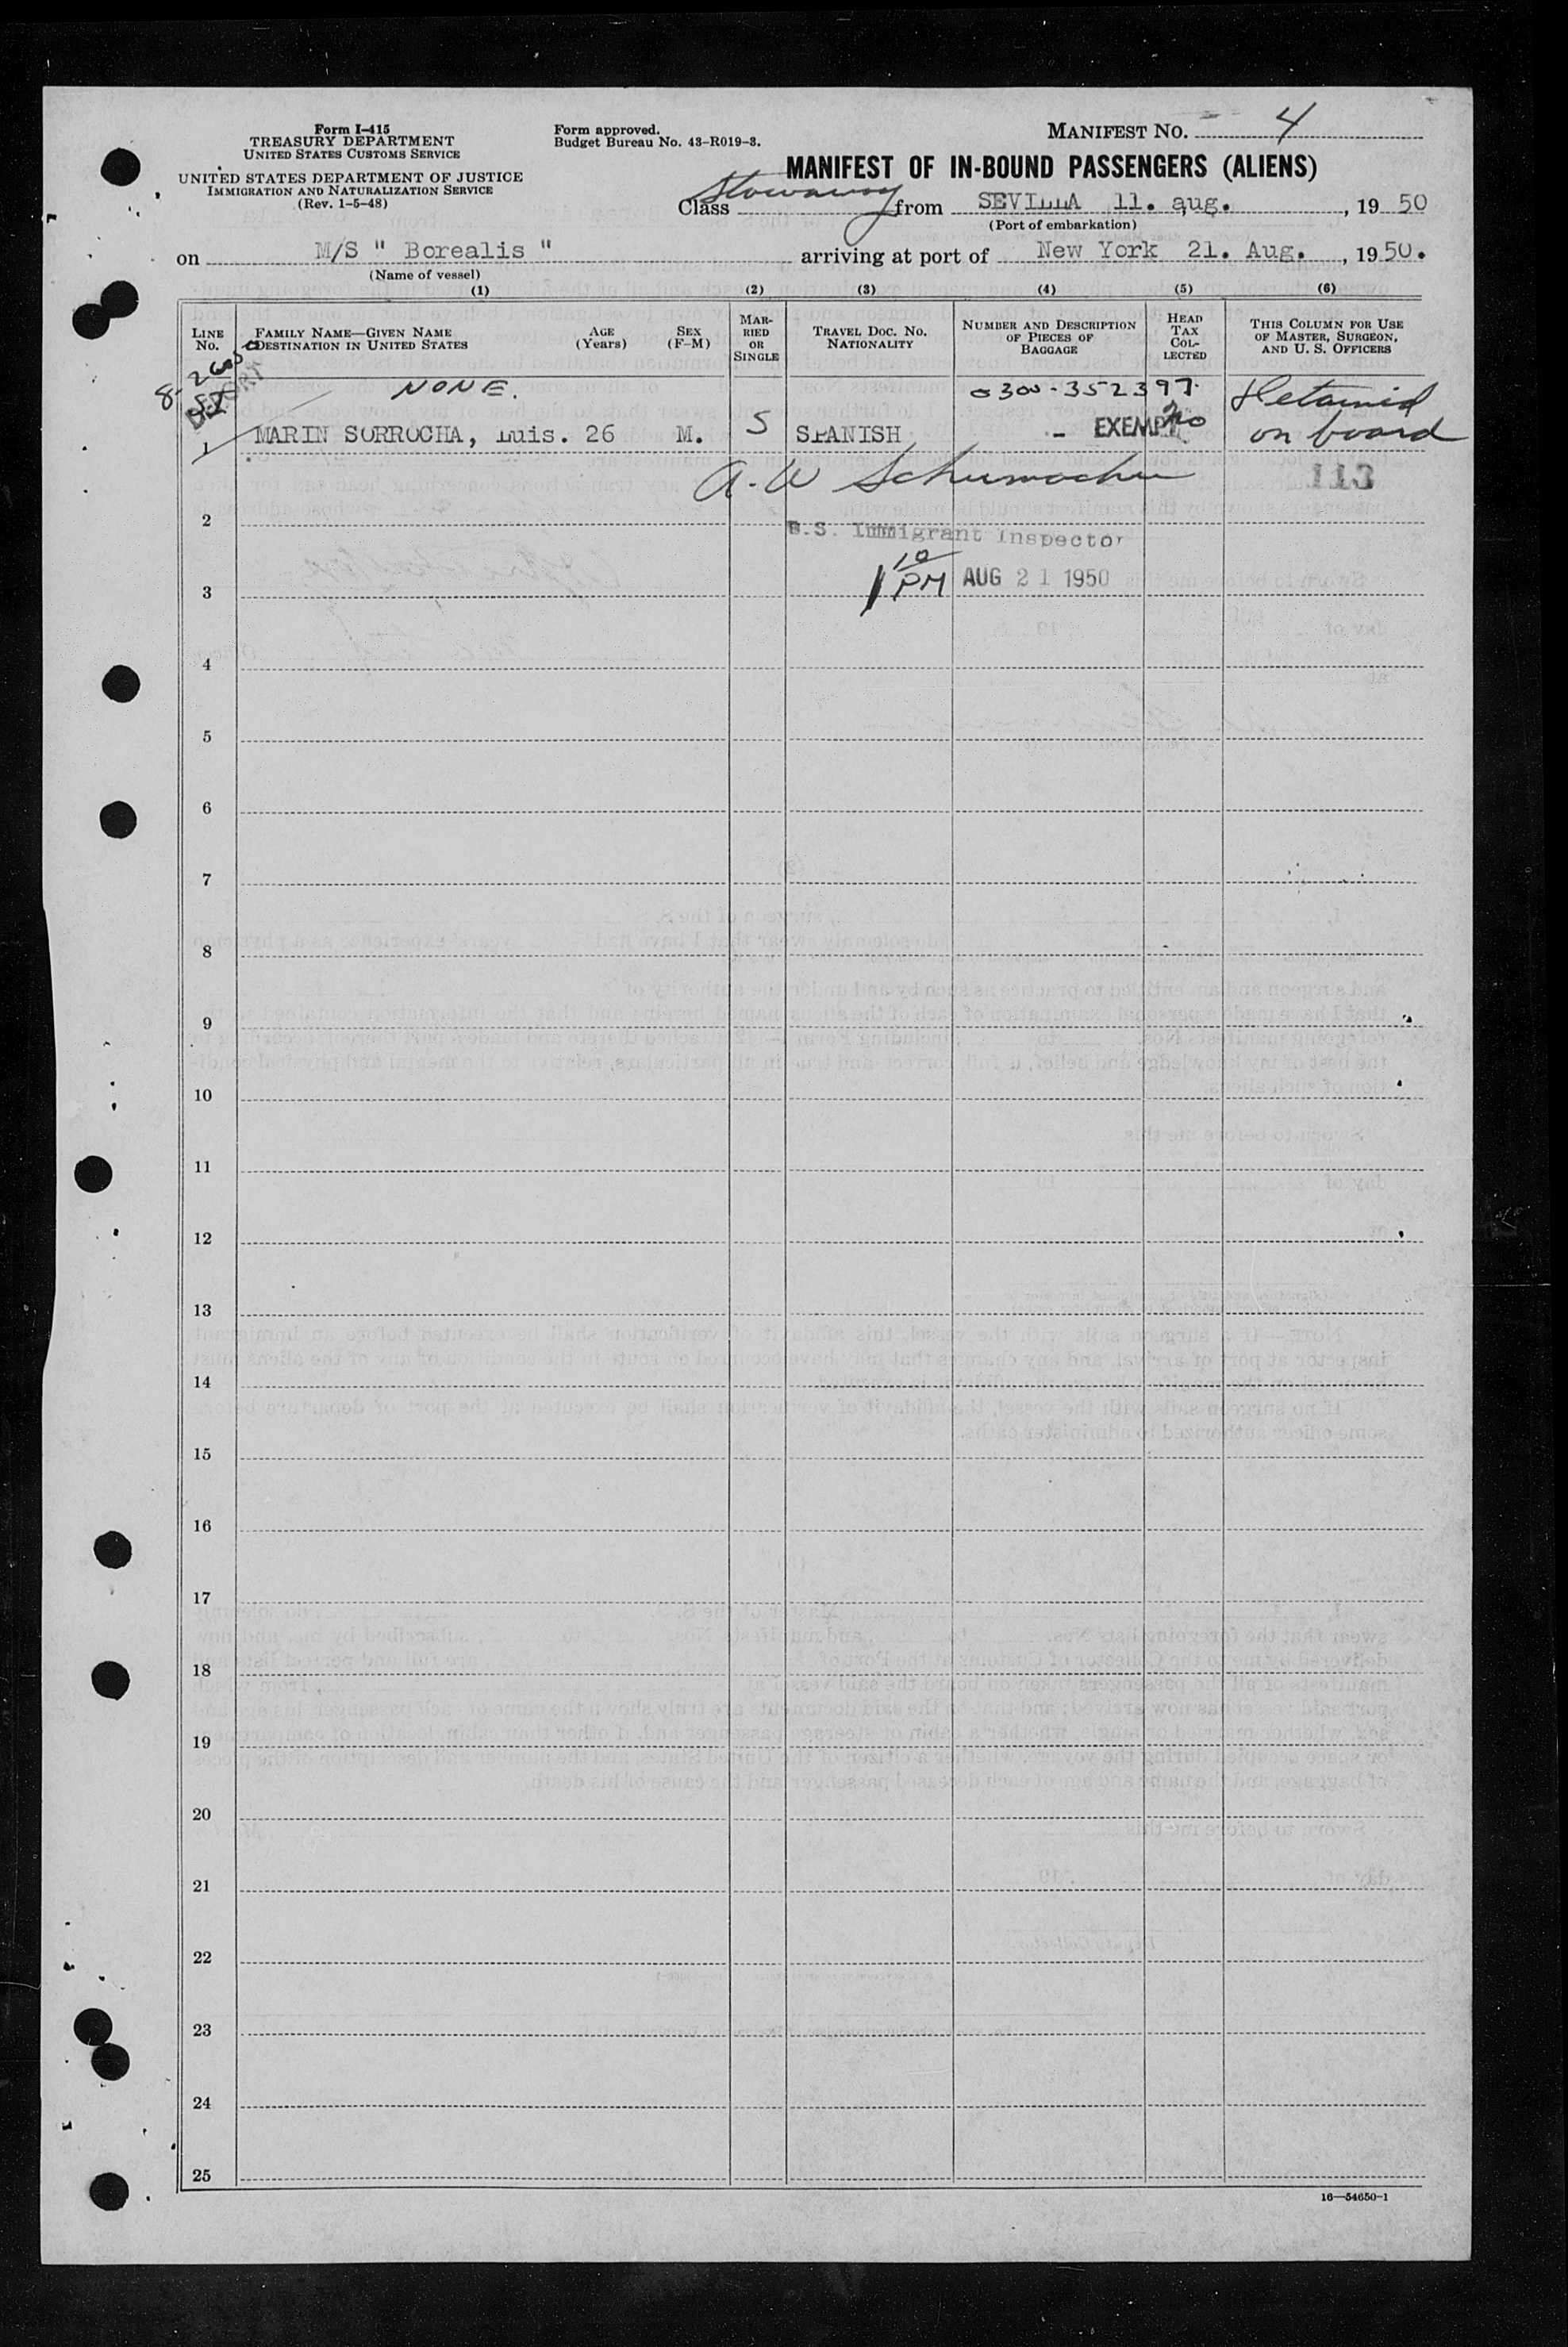 Form I-415
TREASURY DEPARTMENT
UNITED STATES CUSTOMS SERVICE
UNITED STATES DEPARTMENT OF JUSTICE
IMMIGRATION AND NATURALIZATION SERVICE
(Rev. 1-5-48)
Form approved.
Budget Bureau No. 43-R019-3.
MANIFEST NO. 4
MANIFEST OF IN-BOUND PASSENGERS (ALIENS)
Class Stowaway from SEVILLA 11. aug., 19 50
(Port of embarkation)
on M/S " Borealis " arriving at port of New York 21. Aug. , 19 50.
(Name of vessel)
(1) (2) (3) (4) (5) (6)
LINE NO.
FAMILY NAME—GIVEN NAME
DESTINATION IN UNITED STATES
AGE
(Years)
SEX
(F-M)
MAR-
RIED
OR
SINGLE
TRAVEL DOC. NO.
NATIONALITY
NUMBER AND DESCRIPTION
OF PIECES OF
BAGGAGE
HEAD
TAX
COL-
LECTED
THIS COLUMN FOR USE
OF MASTER, SURGEON,
AND U. S. OFFICERS
NONE. 0300-352397. Detained
1 MARIN SORROCHA, Luis. 26 M. S SPANISH - EXEMPT on board
A. W Schumacher 113
2
U.S. Immigrant Inspector
1 10 PM AUG 21 1950
3
4
5
6
7
8
9
10
11
12
13
14
15
16
17
18
19
20
21
22
23
24
25
16—54650-1